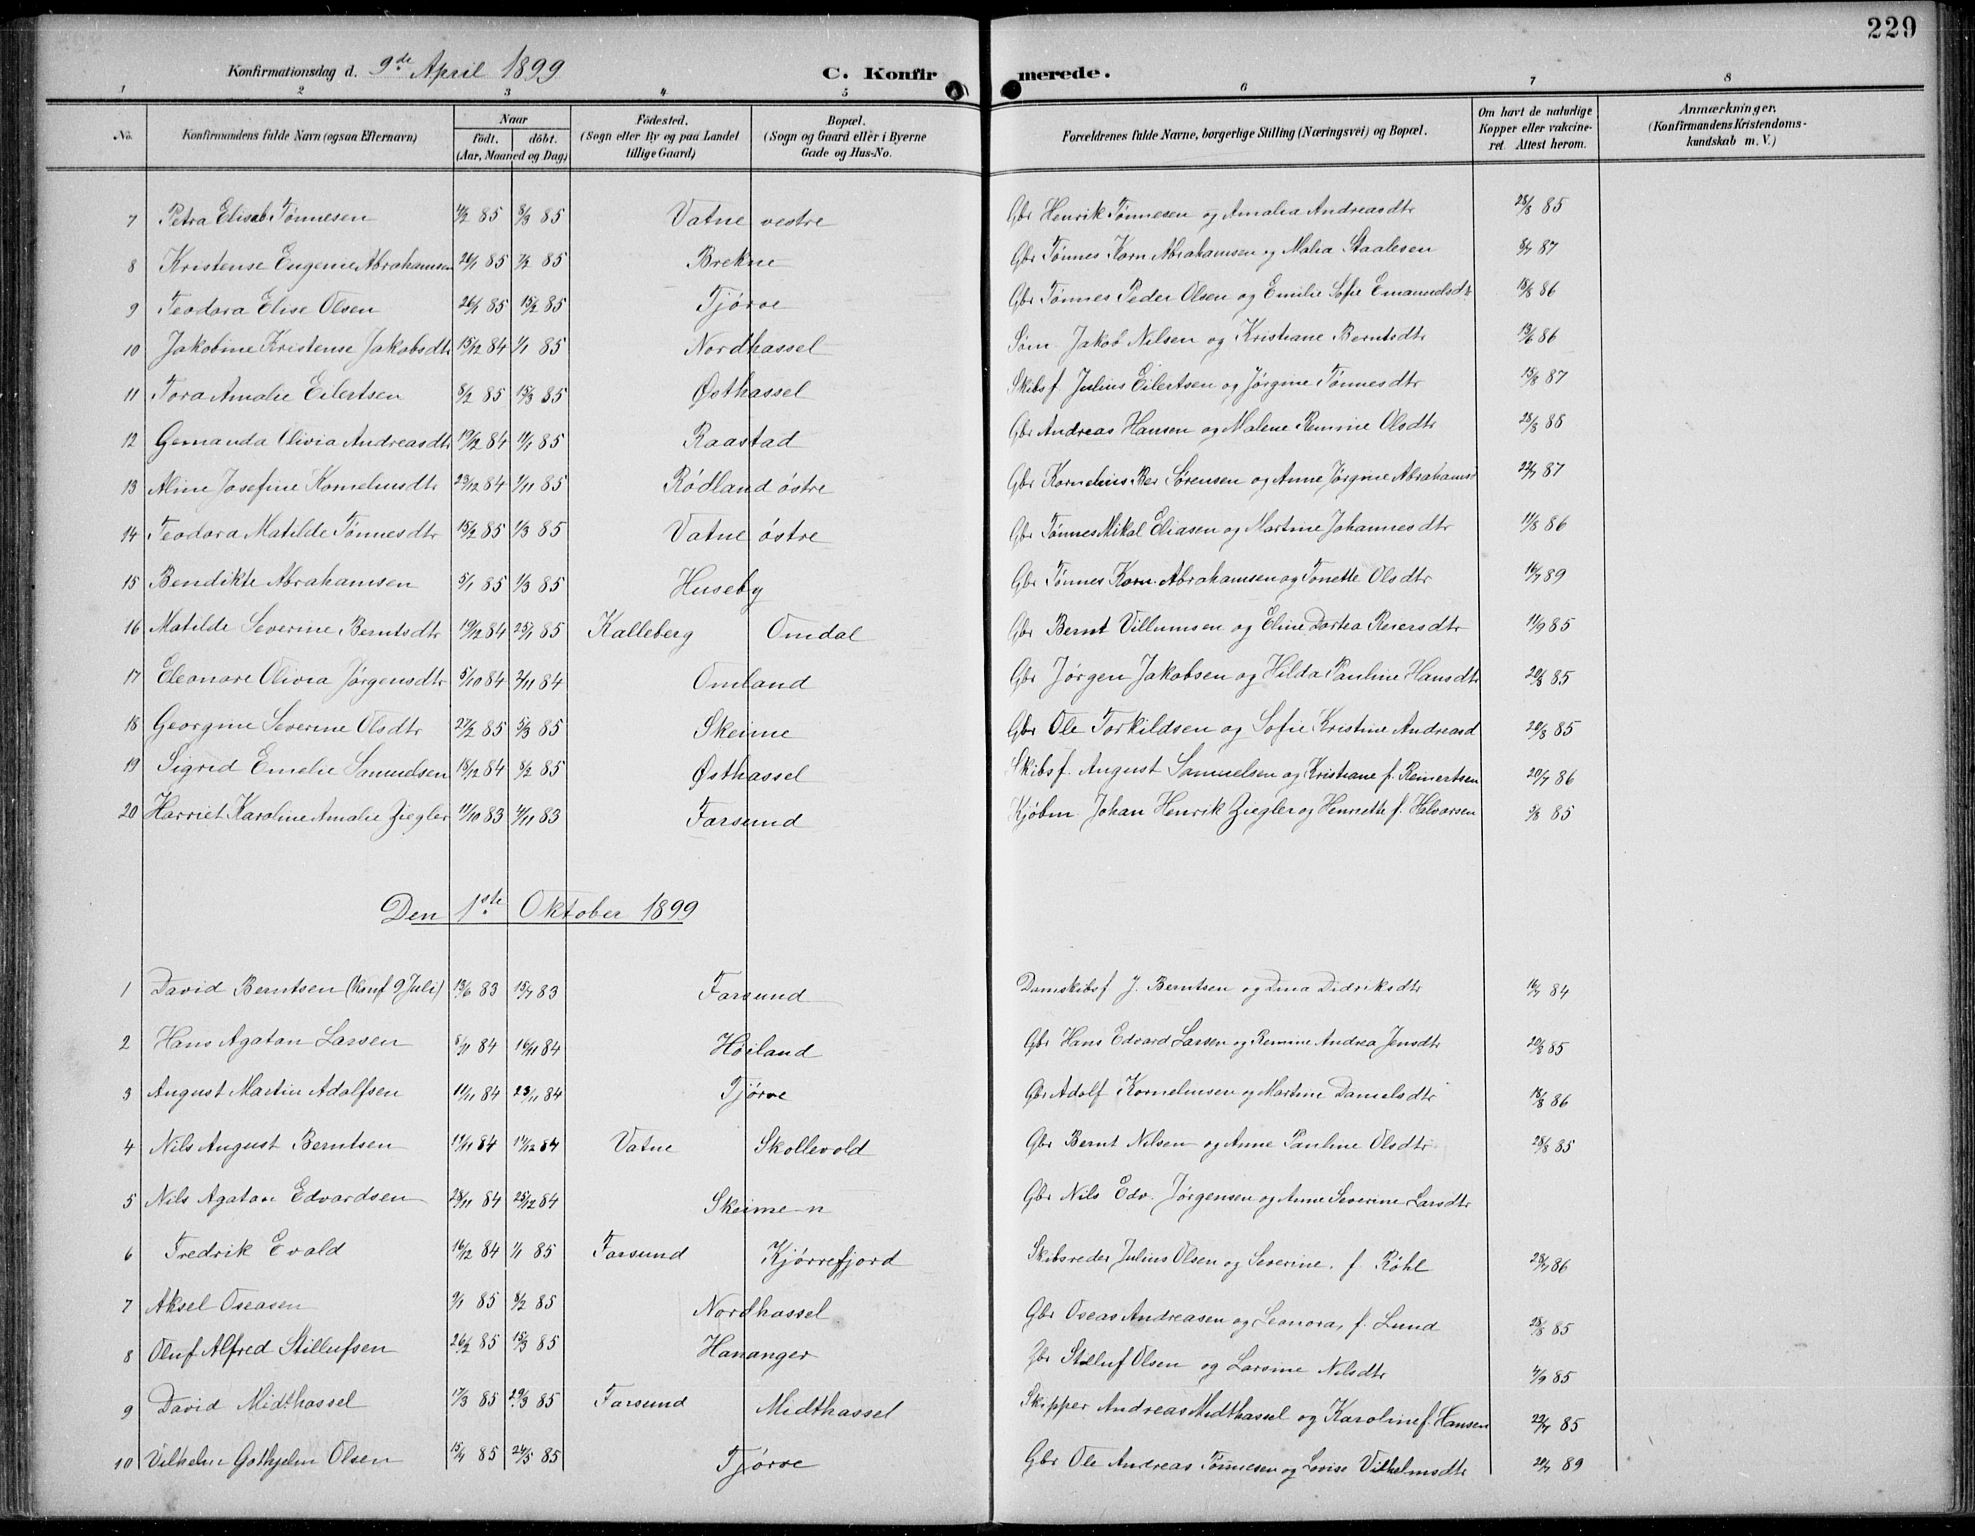 229
Konfirmationsdag d. 9de April 1899 C. Konfirmerede.
1 2 3 4 5 6 7 8
No. Konfirmandens fulde Navn (ogsaa Efternavn) Naar födt. döbt. (Aar, Maaned og Dag) Födested. (Sogn eller By og paa Landet tillige Gaard) Bopæl. (Sogn og Gaard eller i Byerne Gade og Hus-No. Forældrenes fulde Navne, borgerlige Stilling (Næringsvei) og Bopæl. Om havt de naturlige Kopper eller vakcineret. Attest herom. Anmærkninger. (Konfirmandens Kristendomskundskab m. V.)
7 Petra Elisab Tønnesen 85 8/3 85 Vatne vestre Gbr Henrik Tønnesen og Amalia Andreasdtr 28/8 85
8 Kristense Eugenie Abrahamsen 20/1 85 7/2 85 Brekne Gbr Tønnes Korn Abrahamsen og Malia Staalesen 87
9 Teodora Elise Olsen 26/1 85 15/2 85 Tjørve Gbr Tønnes Peder Olsen og Emilie Sofie Emanuelsdtr 18/8 86
10 Jakobine Kristense Jakobsdtr 15/12 84 1/1 85 Nordhassel Søm. Jakob Nilsen og Kristiane Berntsdtr 13/6 86
11 Tora Amalie Eilertsen 8/2 85 15/3 85 Østhassel Skibsf. Julius Eilertsen og Jørgine Tønnesdtr 15/8 87
12 Gemanda Olivia Andreasdtr 19/12 84 11/1 85 Raastad Gbr Andreas Hansen og Malene Remine Olsdtr 28/8 86
13 Aline Josefine Korneliusdtr 29/12 84 1/11 85 Rødland østre Gbr Kornelius Ber Sørensen og Anne Jørgine Abrahamsd 22/7 87
14 Teodora Matilde Tønnesdtr 15/2 85 1/3 85 Vatne østre Gbr Tønnes Mikal Eliasen og Martine Johannesdtr 11/8 86
15 Bendikte Abrahamsen 5/1 85 1/3 85 Huseby Gbr Tønnes Korn. Abrahamsen og Tonette Olsdtr 89
16 Matilde Severine Berntsdtr 19/12 84 25/1 85 Kalleberg Omdal Gbr Bernt Villumsen og Eline Dortea Reiersdtr 11/9 85
17 Eleonore Olivia Jørgensdtr 5/10 84 2/11 84 Omland Gbr Jørgen Jakobsen og Hilda Pauline Hansdtr 20/8 85
18 Georgine Severine Olsdtr 27/2 85 5/3 85 Skeime Gbr Ole Torkildsen og Sofie Kristine Andreasd 20/8 85
19 Sigrid Emelie Samuelsen 18/12 84 8/2 85 Østhassel Skibsf. August Samuelsen og Kristiane f. Reinertsen 20/7 86
20 Harriet Karoline Amalie Ziegler 11/10 83 4/11 83 Farsund Kjøbm Johan Henrik Ziegler og Henriette f. Halvorsen 5/8 85
Den 1ste Oktober 1899
1 David Berntsen (Konf 9 Juli) 13/6 83 15/7 83 Farsund Damskibsf J. Berntsen og Dina Didriksdtr 16/7 84
2 Hans Agaton Larsen 8/11 84 16/11 84 Høiland Gbr Hans Edvard Larsen og Remine Andrea Jensdtr 20/8 85
3 August Martin Adolfsen 11/11 84 23/11 84 Tjørve Gbr Adolf Korneliusen og Martine Danielsdtr 18/8 86
4 Nils August Berntsen 84 14/12 84 Vatne Skollevold Gbr Bernt Nilsen og Anne Pauline Olsdtr 28/8 85
5 Nils Agaton Edvardsen 28/11 84 25/12 84 Skeime n Gbr Nils Edv. Jørgensen og Anne Severine Larsdtr
6 Fredrik Evald 16/12 84 1/1 85 Farsund Kjørrefjord Skibsreder Julius Olsen og Severine. f. Röhl 28/7 86
7 Aksel Oseasen 9/1 85 8/2 85 Nordhassel Gbr Oseas Andreasen og Leonora, f. Lund 28/8 85
8 Oluf Alfred Stillufsen 26/2 85 15/3 85 Hananger Gbr Stilluf Olsen og Larsine Nilsdtr 4/9 85
9 David Midthassel 17/3 85 29/3 85 Farsund Midthassel Skipper Andreas Midthassel og Karoline f. Hansen 22/7 85
10 Vilhelm Gothjelm Olsen 15/4 85 24/5 85 Tjørve Gbr Ole Andreas Tønnesen og Lovise Vilhelmsdtr 20/7 89